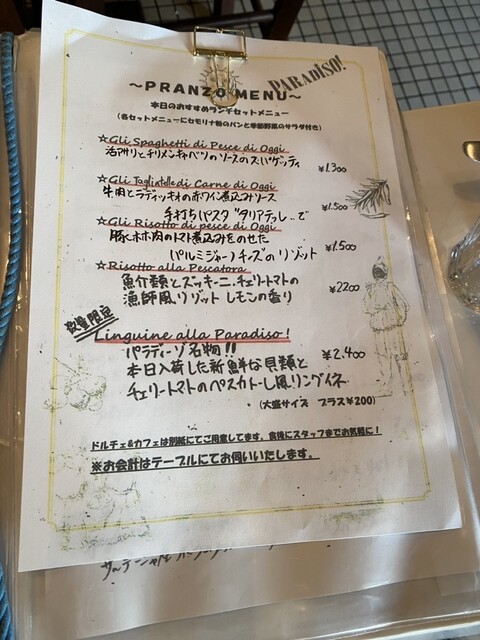 PARADISO!
~PRANZO MENU~
本日のおすすめランチセットメニュー
(各セットメニューにセモリナ粉のパンと季節野菜のサラダ付き)
☆Gli Spaghetti di Pesce di Oggi
活アサリとチリメンキャベツのソースのスパゲッティ ¥1.300
☆Gli Tagliatelle di Carne di Oggi
牛肉とラディッキオの赤ワイン煮込みソース
手打ちパスタ"タリアテッレ"で ¥1.500
☆Gli Risotto di pesce di Oggi
豚ホホ肉のトマト煮込みをのせた
パルミジャーノチーズのリゾット ¥1.500
☆Risotto alla Pescatora
魚介類とズッキーニ、チェリートマトの
漁師風リゾット レモンの香り ¥2200
数量限定
Linguine alla Paradiso!
パラディーゾ名物!!
本日入荷した新鮮な貝類と ¥2.400
チェリートマトのペスカトーレ風リングイネ
(大盛サイズ プラス¥200)
ドルチェ&カフェは別紙にてご用意してます。食後にスタッフまでお気軽に!
※お会計はテーブルにてお伺いいたします。